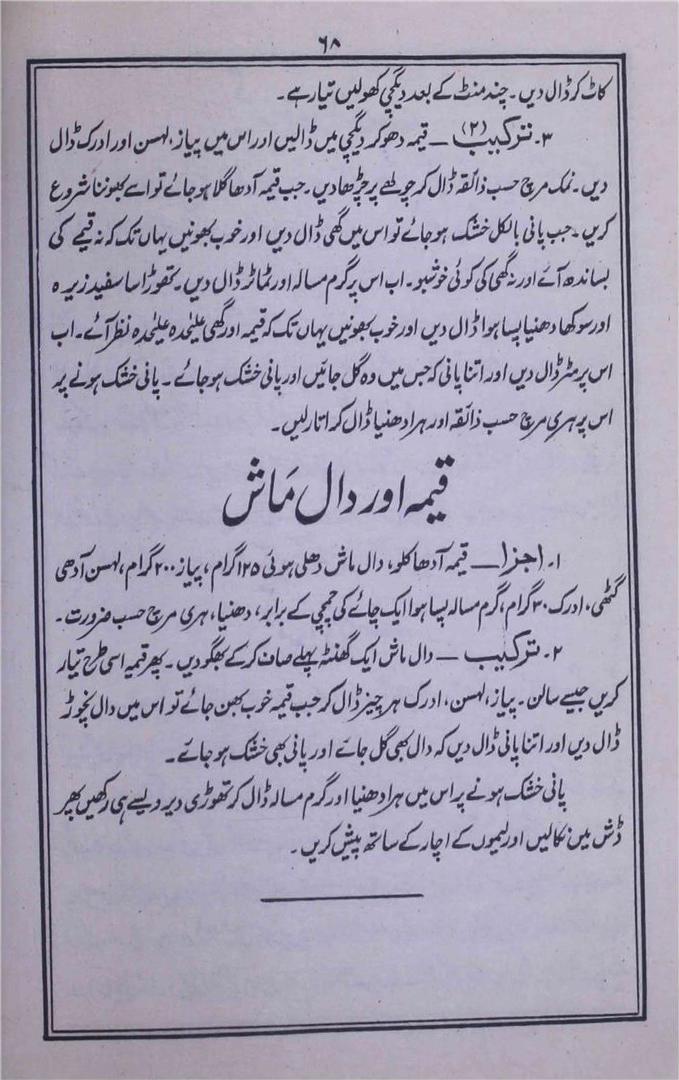 ۶۸
کاٹ کر ڈال دیں۔ چند منٹ کے بعد دیگچی کھولیں تیار ہے۔
۳۔ ترکیب (۲) — قیمہ دھو کر دیگچی میں ڈالیں اور اس میں پیاز، لہسن اور ادرک ڈال
دیں۔ نمک مرچ حسب ذائقہ ڈال کہ چولہے پر چڑھا دیں۔ جب قیمہ آدھا گلا ہو جائے تو اسے بھوننا شروع
کریں۔ جب پانی بالکل خشک ہو جائے تو اس میں گھی ڈال دیں اور خوب بھونیں یہاں تک کہ نہ قیمے کی
بساندھ آئے اور نہ گھی کی کوئی خوشبو۔ اب اس پر گرم مسالہ اور ٹماٹر ڈال دیں۔ تھوڑا سا سفید زیرہ
اور سوکھا دھنیا پسا ہوا ڈال دیں اور خوب بھونیں یہاں تک کہ قیمہ اور گھی علیٰحدہ علیٰحدہ نظر آئے۔ اب
اس پر مٹر ڈال دیں اور اتنا پانی کہ جس میں وہ گل جائیں اور پانی خشک ہو جائے۔ پانی خشک ہونے پر
اس پر ہری مرچ حسب ذائقہ اور ہرا دھنیا ڈال کر اتار لیں۔
قیمہ اور دال مَاش
۱۔ اجزا — قیمہ آدھا کلو، دال ماش دھلی ہوئی ۱۲۵ گرام، پیاز ۲۰۰ گرام، لہسن آدھی
گٹھی، ادرک ۲۰ گرام، گرم مسالہ پسا ہوا ایک چائے کی چمچی کے برابر، دھنیا، ہری مرچ حسب ضرورت۔
۲۔ ترکیب — دال ماش ایک گھنٹہ پہلے صاف کر کے بھگو دیں۔ پھر قیمہ اسی طرح تیار
کریں جیسے سالن۔ پیاز، لہسن، ادرک ہر چیز ڈال کر جب قیمہ خوب بھن جائے تو اس میں دال نچوڑ
ڈال دیں اور اتنا پانی ڈال دیں کہ دال بھی گل جائے اور پانی بھی خشک ہو جائے۔
پانی خشک ہونے پر اس میں ہرا دھنیا اور گرم مسالہ ڈال کر تھوڑی دیر ویسے ہی رکھیں پھر
ڈش میں نکالیں اور لیموں کے اچار کے ساتھ پیش کریں۔